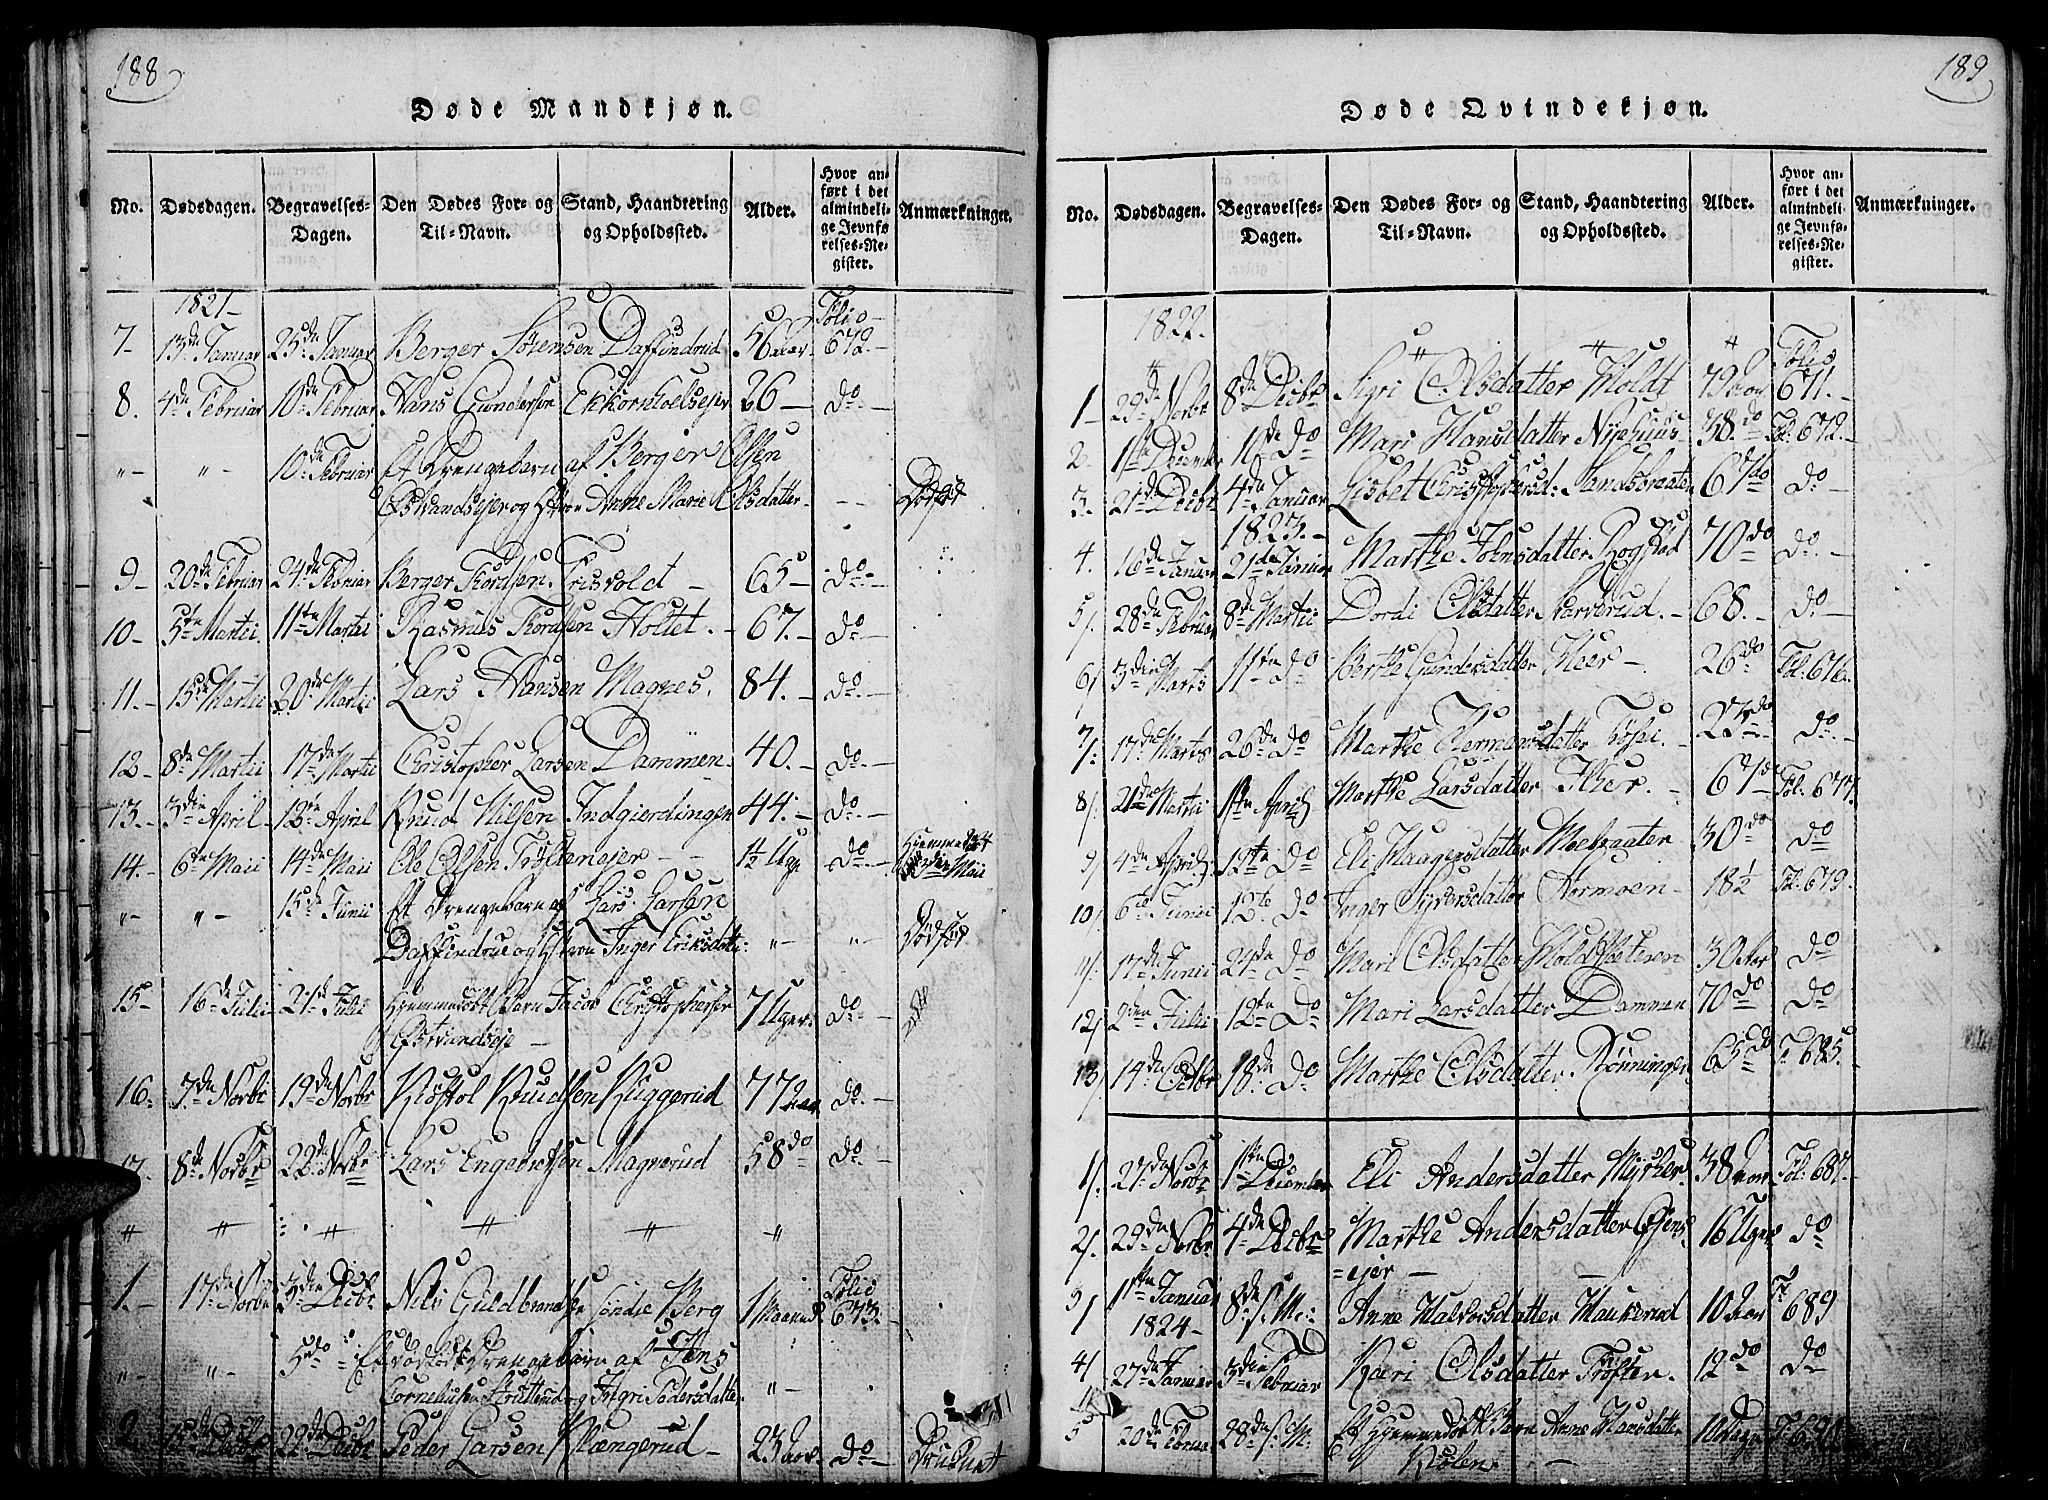 188
Døde Mandkjøn.
No. Dødsdagen. Begravelses-Dagen. Den Dødes For- og Til-Navn. Stand, Haandtering og Opholdssted. Alder. Hvor anført i det almindelige Jevnførelses-Register. Anmærkninger.
1821 Folio
7 13de Januar 25de Januar Berger Sørensen Daffindrud 56 aar 672.
8. 4de Februar 10de Februar Hans Gundersøn Ekkornhoelsejer 26 do
" " 10de Februar Et Drengebarn af Berger Olsen
Østvandsejer og Hstroe Anne Marie Olsdatter Dødfød
9 20de Februar 24de Februar Berger Thordsen 65 do
10 5te Martii 11te Martii Rasmus Thordsen Holtet. 67. do
11. 15de Martii 20de Martii Lars Hansen Magnes. 84. do
12 8de Martii 17de Martii Christopher Larsen Dammen 40. do
13. 3die April 12te April Knud Nilsen Indgierdingen 44. do
14. 6te Maii 14de Maii Ole Olsen 1½ Uge do Hjemmedøbt
" " 15de Junii Et Drengebarn af Lars Larsen
Daffindrud og Hstroe Inger Eriksdatter " " Dødfød
15 16de Julii 21de Julii Hjemmedøbt Barn Jacob Christophersen 7 Uger do
Østvandseje
16. 7de Novbr 19de Novbr Kiøstol Knudsen Ruggerud 77 aar do
17. 8de Novbr 22de Novbr Lars Engebretsen Magnerud 58do do
" " " " " "
1. 17de Novbr 3die Decbr Nils Guldbrandsen søndre Berg 1 Maaned Folio 673.
" " 5do Et dødfødt Drengebarn af Jens
Corneliusen Strutterud og Ingri Pedersdatter "
2. 22de Decbr Peder Larsen Klængerud 23 aar do Druknet
189
Døde Qvindekjøn.
No. Dødsdagen. Begravelses-Dagen. Den Dødes For- og Til-Navn. Stand, Haandtering og Opholdssted. Alder. Hvor anført i det almindelige Jevnførelses-Register. Anmærkninger.
1822. Folio
1 29de Novbr 8de Decbr Sigri Olsdatter Moldt 79 aar 671.
2 1ste December 16de do Mari Hansdatter Nyehuus 38. do Fol. 672.
3. 21de Decbr 4de Januar Lisbet Christophersd: Sandsbraaten 67do do
1823.
4. 16de Januar 21de Januar Marthe Johnsdatter Rogstad 70do do
5/. 28de Februar 8de Martii Dordi Olsdatter Narverud. 68. do
6/ 3die Marts 11te do Berthe Gundersdatter Kleer 26do Fol. 676.
7/. 17de Marts 26de do Marthe Hermansdatter do.
8/. 21de Martii 1ste April Marthe Larsdatter 67do Fol. 677.
9/ 4de April 12te do Eli Haagensdatter Moebraaten 30do do
10/ 6te Junii 12te do Inger Syversdatter Hormoen 18½ Fol. 679.
11/. 17de Junii 24de do Mari Olsdatter 30 Aar do
12/ 2den Julii 12te do Mari Larsdatter Dammen 70do do
13/ 14de Octbr 18de do Marthe Olsdatter Rønningen 65do F. 685.
1/. 27de Novbr 1ste December Eli Andersdatter 38 Aar Fol. 687.
2/. 29de Novbr 4de Decbr Marthe Andersdatter 16 Uger do
=ejer
3/ 1ste Januar 8de s: M: Anne Halvorsdatter Haukerud 10 Aar F. 689
1824
4/. 27de Januar 3die Februar Kari Olsdatter Trøften. 12do do
5 20de Februar 28de s: M: Et Hjemmedøbt Barn Anne Hansdatter 10 Dage
Kølen